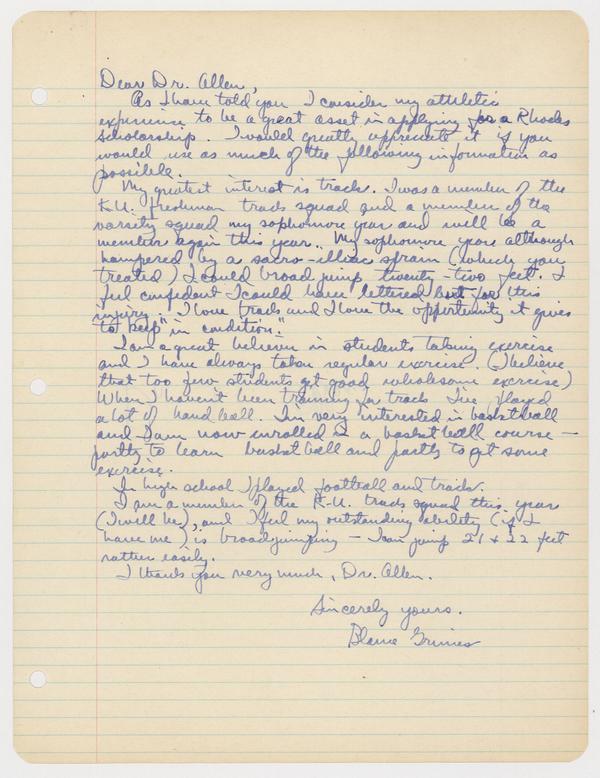 Dear Dr. Allen,
As I have told you I consider my athletic
experience to be a great asset in applying for a Rhodes
scholarship. I would greatly appreciate it if you
would use as much of the following information as
possible.
My greatest interest is track. I was a member of the
K.U. freshman track squad and a member of the
varsity squad my sophomore year and will be a
member again this year. My sophomore year although
hampered by a sacro-illiac sprain (which you
treated) I could broad jump twenty-two feet. I
feel confident I could have lettered but for this
injury. I love track and I love the opportunity it gives
to keep "in condition."
I am a great believer in students taking exercise
and I have always taken regular exercise. (I believe
that too few students get good wholesome exercise)
When I haven't been training for track I've played
a lot of hand ball. I'm very interested in basketball
and I am now enrolled in a basket ball course —
partly to learn basket ball and partly to get some
exercise.
In high school I played football and track.
I am a member of the K.U. track squad this year
(I will be), and I feel my outstanding ability (if I
have me) is broadjumping — I can jump 21 & 22 feet
rather easily.
I thank you very much, Dr. Allen.
Sincerely yours.
Blaine Grimes